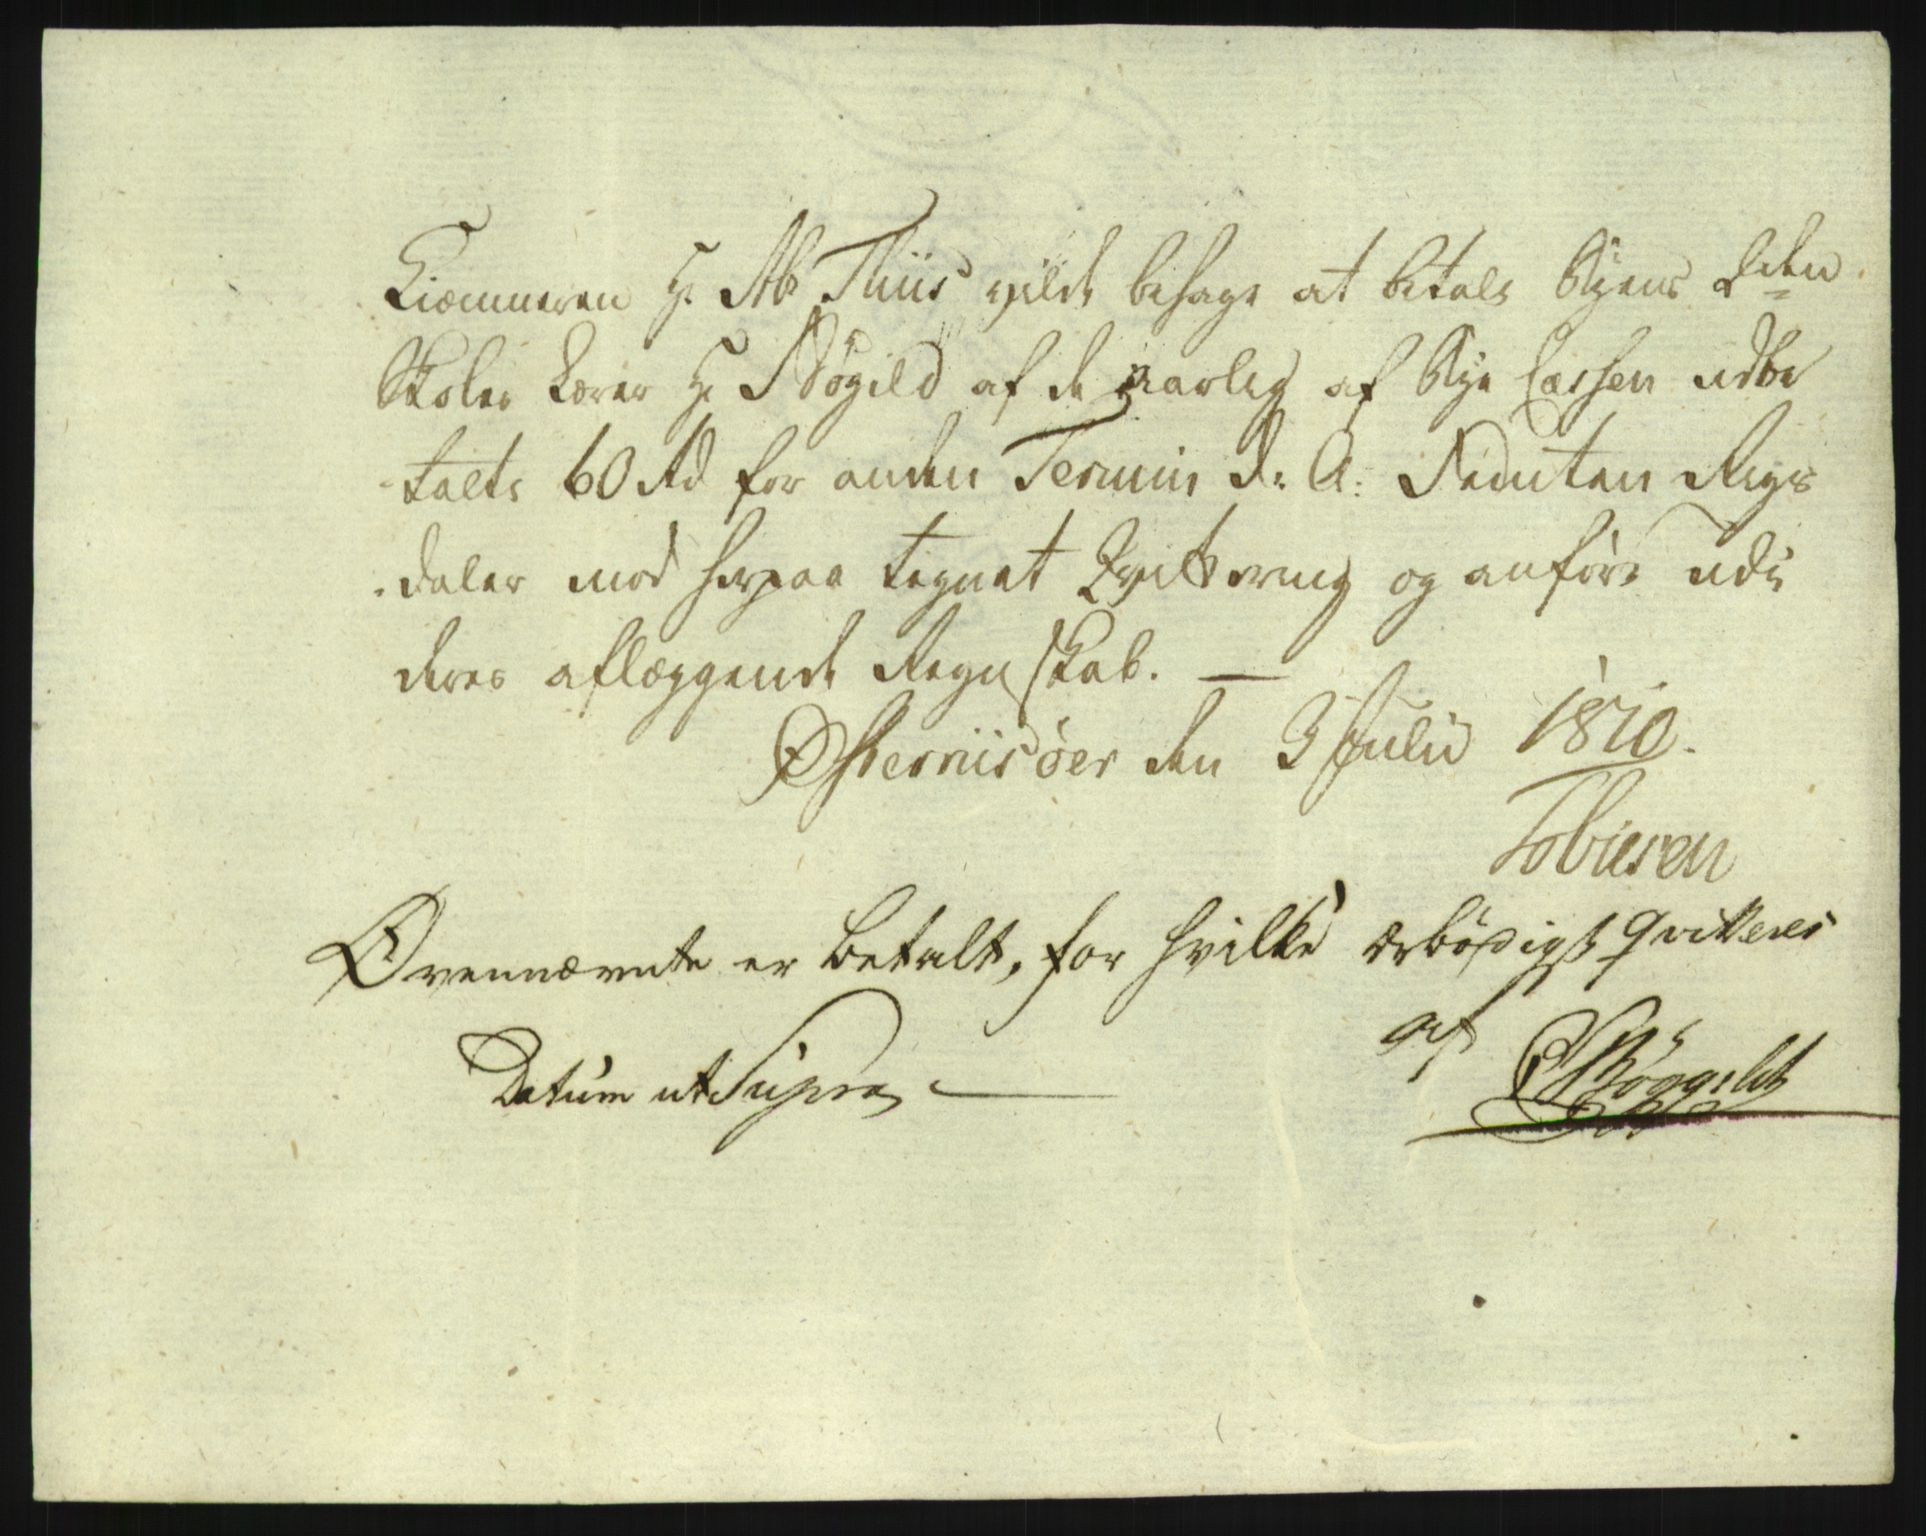 Kiæmneren H. Ab Thiis vilde behage at betale Byens 2den
Skole Lærer H. Bøgild af de aarlig af Bye Cassen udbe
talte 60 Rd for anden Termin d: A: Femten Rigs
daler mod herpaa tegnet Qvittering og anføre udi
deres aflæggende Regnskab. —
Østerriisøer den 3 Julii 1810.
Tobiesen
Ovennævnte er betalt, for hvilke ærbødigst qvitteres
af Bøggild
Datum ut Supra —